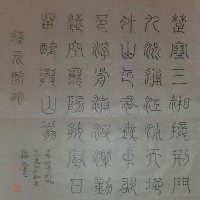 楚塞三湘接荊門
九派通江流天地
外山色有無中郡
邑浮前浦波瀾動
遠空襄陽好風日
留醉與山翁
漢江臨眺